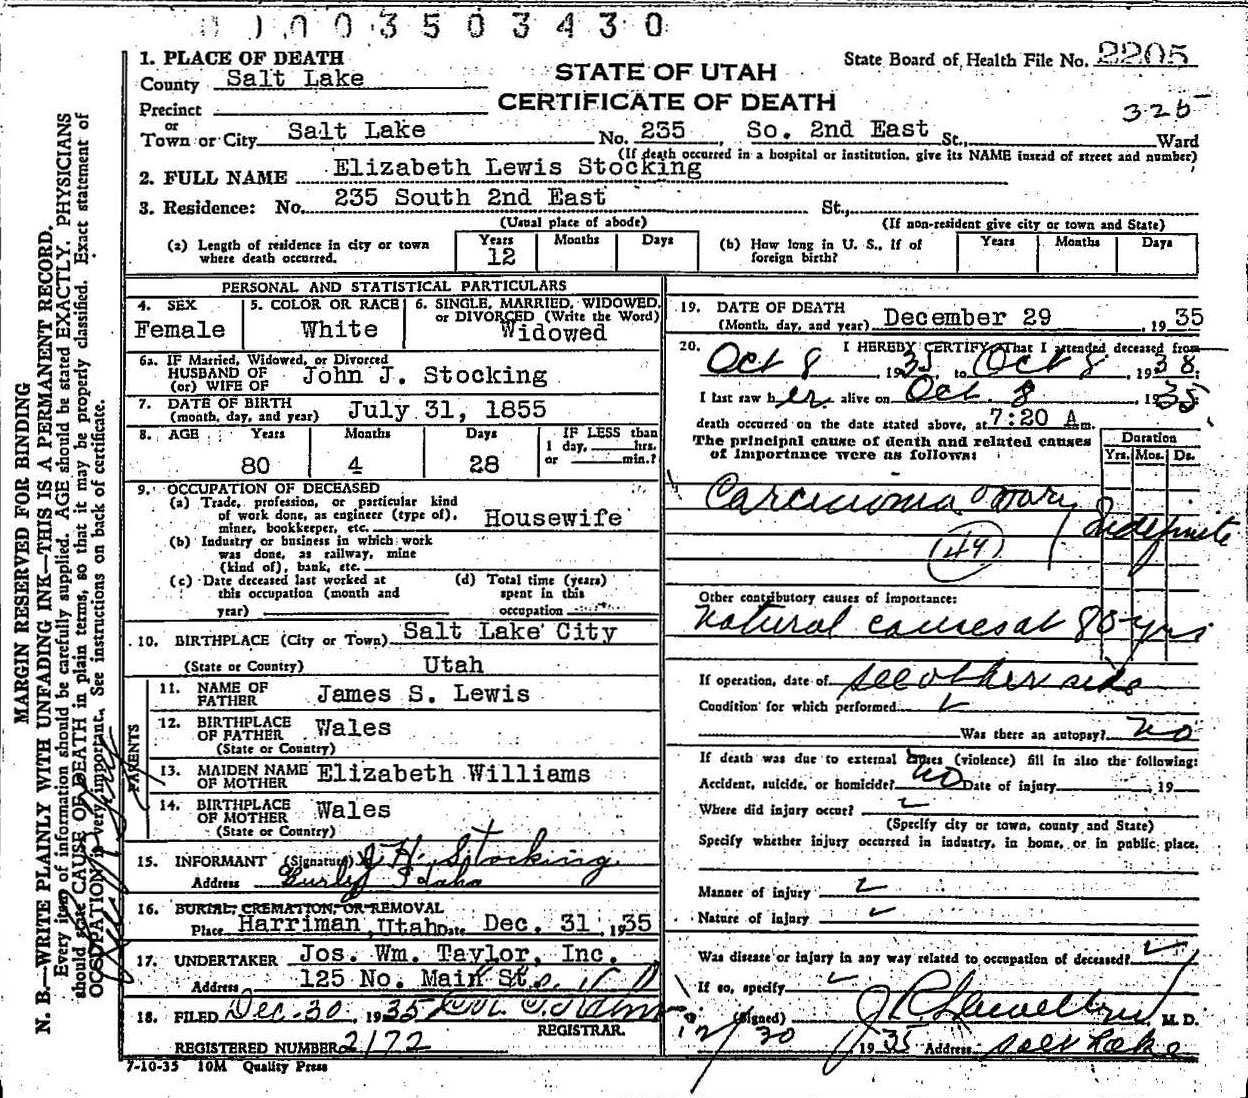 0100350 3430
1. PLACE OF DEATH
State Board of Health File No. 2205
County Salt Lake
STATE OF UTAH
CERTIFICATE OF DEATH
Precinct
or
Town or City Salt Lake No. 235 So. 2nd East St., Ward
(If death occurred in a hospital or institution, give its NAME instead of street and number)
2. FULL NAME Elizabeth Lewis Stocking
3. Residence: No. 235 South 2nd East St.,
(Usual place of abode) (If non-resident give city or town and State)
(a) Length of residence in city or town where death occurred. Years 12 Months Days
(b) How long in U. S., if of foreign birth? Years Months Days
PERSONAL AND STATISTICAL PARTICULARS
4. SEX Female
5. COLOR OR RACE White
6. SINGLE, MARRIED, WIDOWED, or DIVORCED (Write the Word) Widowed
6a. IF Married, Widowed, or Divorced
HUSBAND OF
(or) WIFE OF John J. Stocking
7. DATE OF BIRTH
(month, day, and year) July 31, 1855
8. AGE Years 80 Months 4 Days 28
IF LESS than
1 day, hrs.
or min.?
9. OCCUPATION OF DECEASED
(a) Trade, profession, or particular kind
of work done, as engineer (type of),
miner, bookkeeper, etc. Housewife
(b) Industry or business in which work
was done, as railway, mine
(kind of), bank, etc.
(c) Date deceased last worked at
this occupation (month and
year)
(d) Total time (years)
spent in this
occupation
10. BIRTHPLACE (City or Town) Salt Lake City
(State or Country) Utah
PARENTS
11. NAME OF
FATHER James S. Lewis
12. BIRTHPLACE
OF FATHER Wales
(State or Country)
13. MAIDEN NAME
OF MOTHER Elizabeth Williams
14. BIRTHPLACE
OF MOTHER Wales
(State or Country)
15. INFORMANT (Signature) J. H. Stocking
Address Burley Idaho
16. BURIAL, CREMATION, OR REMOVAL
Place Harriman, Utah Date Dec. 31, 1935
17. UNDERTAKER Jos. Wm. Taylor, Inc.
Address 125 No. Main St.
18. FILED Dec. 30, 1935
REGISTRAR.
REGISTERED NUMBER 2172
7-10-35 10M Quality Press
19. DATE OF DEATH
(Month, day, and year) December 29, 1935
20. I HEREBY CERTIFY That I attended deceased from
Oct 8, 1935, to Oct 8, 1938;
I last saw her alive on Oct. 8, 1935,
death occurred on the date stated above, at 7:20 A m.
The principal cause of death and related causes
of importance were as follows:
Duration
Yrs. Mos. Ds.
Carcinoma ovary Indefinite
(49)
Other contributory causes of importance:
Natural causes at 80 yrs
If operation, date of see other side
Condition for which performed
Was there an autopsy? no
If death was due to external causes (violence) fill in also the following:
Accident, suicide, or homicide? no Date of injury , 19
Where did injury occur?
(Specify city or town, county and State)
Specify whether injury occurred in industry, in home, or in public place.
Manner of injury
Nature of injury
Was disease or injury in any way related to occupation of deceased?
If so, specify
(Signed) M. D.
12/30 1935 Address Salt Lake
MARGIN RESERVED FOR BINDING
N. B.—WRITE PLAINLY WITH UNFADING INK—THIS IS A PERMANENT RECORD.
Every item of information should be carefully supplied. AGE should be stated EXACTLY. PHYSICIANS
should state CAUSE OF DEATH in plain terms, so that it may be properly classified. Exact statement of
OCCUPATION is very important. See instructions on back of certificate.